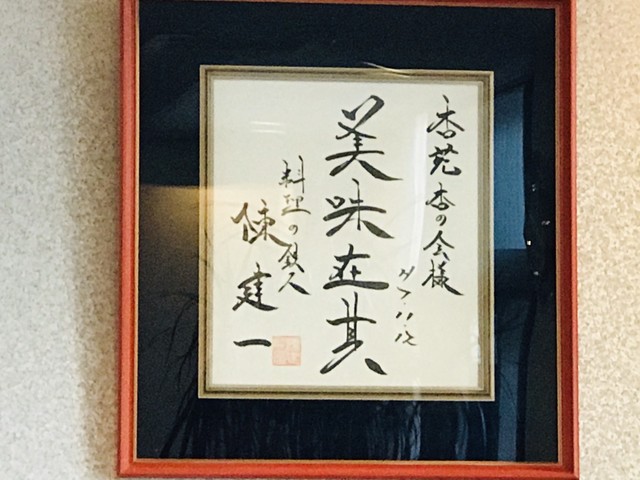 杏苑杏の会様
美味在其
料理の鉄人
陳建一